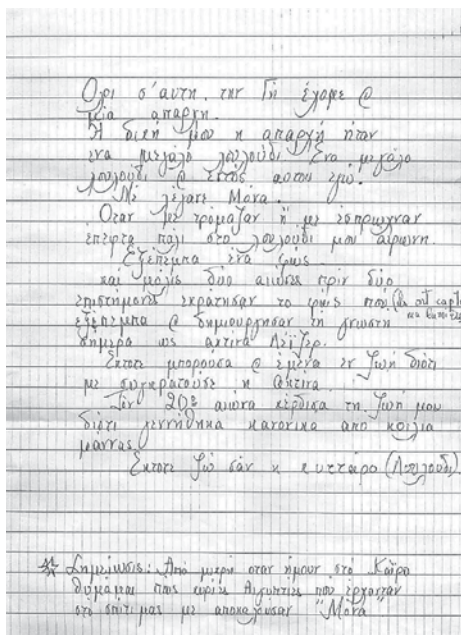 Ολοι σ' αυτη την Γή έχομε @
μία απαρχη.
Η δική μου η απαρχή ήταν
ένα μεγάλο λουλούδι. Ενα μεγάλο
λουλούδι @ εντός αυτού εγώ.
Με λέγατε Μόνα.
Οταν με τρόμαζαν ή με έσπρωχναν
έπεφτα πάλι στο λουλούδι μου άφωνη.
Εξέπεμπα ένα φώς
και μόλις δύο αιώνες πριν δύο
επιστήμονες εκράτησαν το φώς που
εξέπεμπα @ δημιούργησαν τη γνωστή
σήμερα ως ακτίνα Λέϊζερ.
Εκτοτε μπορούσα @ έμενα εν ζωή διότι
με συγκρατούσε η ακτίνα.
Τον 20ο αιώνα κέρδισα τη ζωή μου
διότι γεννήθηκα κανονικά από κοιλιά
μάννας.
Εκτοτε ζώ σάν κυττάρο (Λουλούδι).
Σημείωσις: Από μικρή οταν ήμουν στό Κάϊρο
θυμάμαι πως κυρίες Αιγυπτίες πού έρχονταν
στό σπίτι μας με αποκαλούσαν "Μόνα"